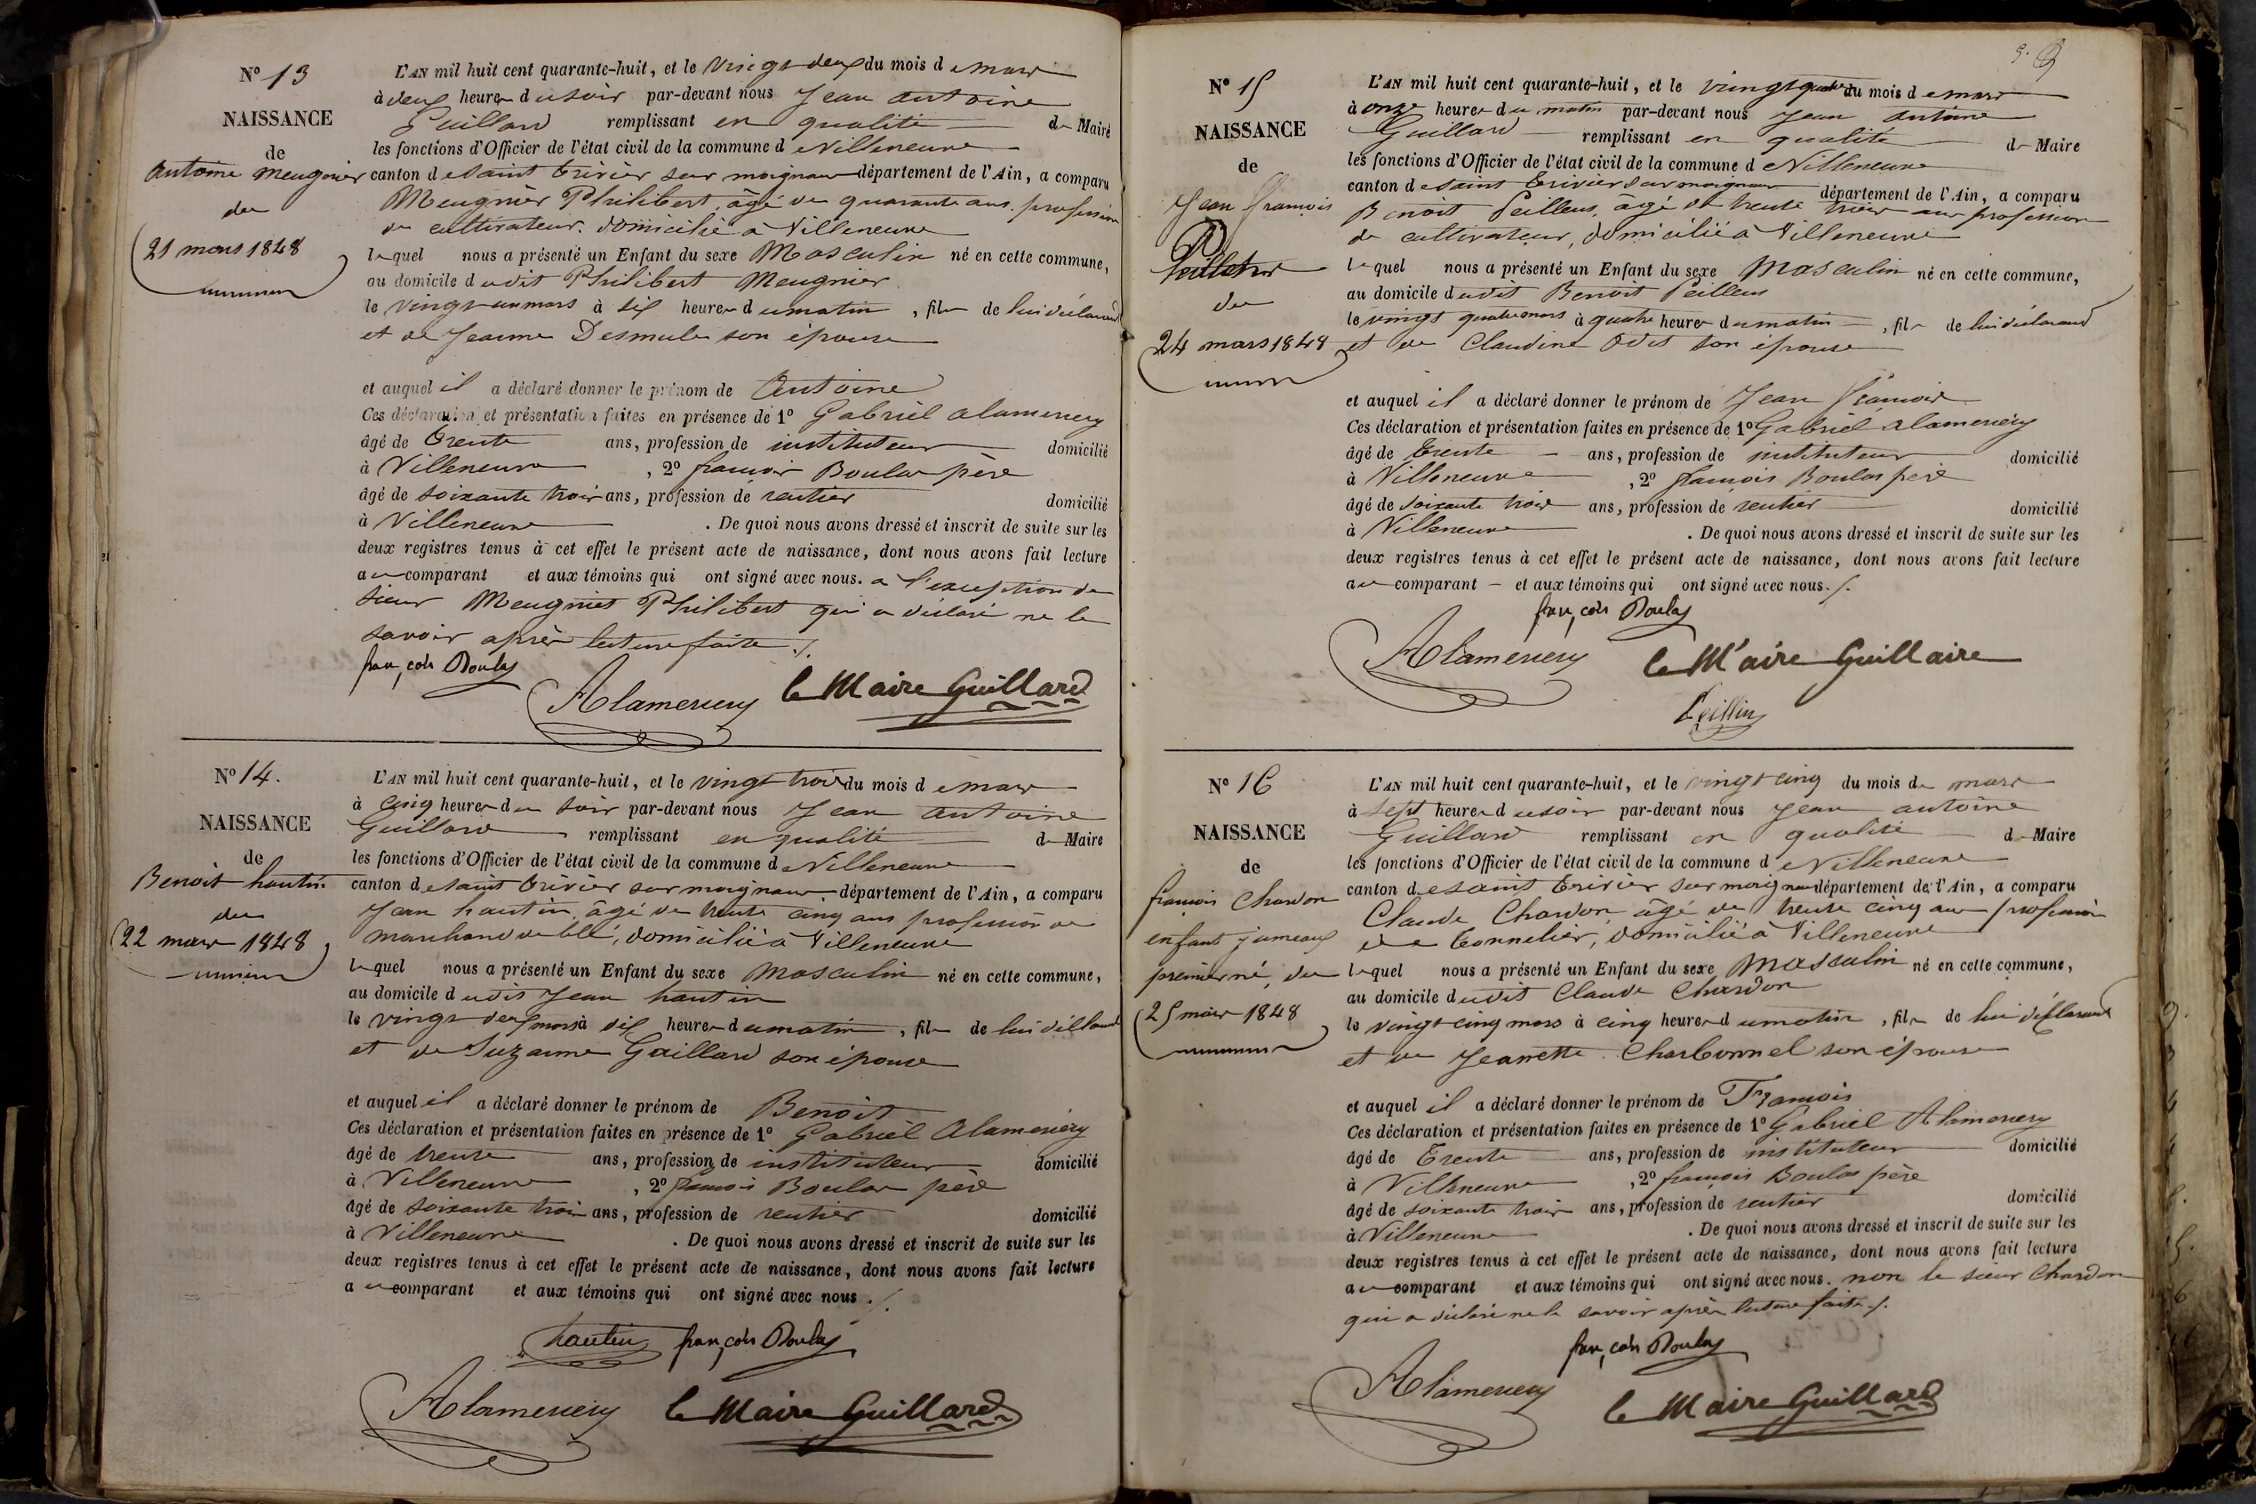 N° 13
NAISSANCE
de
antoine Meugnier
du
21 mars 1848
L'AN mil huit cent quarante-huit, et le vingt deux du mois de mars
à deux heures du soir par-devant nous Jean antoine
Guillard remplissant en qualité de Maire
les fonctions d'Officier de l'état civil de la commune de Villeneuve
canton de saint trivier sur moignans département de l'Ain, a comparu
Meugnier Philibert, âgé de quarante ans, profession
de cultivateur, domicilié à Villeneuve
lequel nous a présenté un Enfant du sexe Masculin né en cette commune,
au domicile dudit Philibert Meugnier
le vingt un mars à six heures du matin, fils de lui déclarant
et de Jeanne Desmule son épouse
et auquel il a déclaré donner le prénom de Antoine
Ces déclaration et présentation faites en présence de 1° Gabriel alamerciery
âgé de trente ans, profession de instituteur domicilié
à Villeneuve, 2° françois Boulas père
âgé de soixante trois ans, profession de rentier domicilié
à Villeneuve. De quoi nous avons dressé et inscrit de suite sur les
deux registres tenus à cet effet le présent acte de naissance, dont nous avons fait lecture
au comparant et aux témoins qui ont signé avec nous. a l'exception du
sieur Meugnier Philibert qui a déclaré ne le
savoir après lecture faite ./.
françois Boulas
Alamerciery le Maire Guillard
N° 14.
NAISSANCE
de
Benoit hautin
du
22 mars 1848
L'AN mil huit cent quarante-huit, et le vingt trois du mois de mars
à cinq heures du soir par-devant nous Jean antoine
Guillard remplissant en qualité de Maire
les fonctions d'Officier de l'état civil de la commune de Villeneuve
canton de saint trivier sur moignans département de l'Ain, a comparu
Jean hautin, âgé de trente cinq ans profession de
marchand de blé, domicilié à Villeneuve
lequel nous a présenté un Enfant du sexe Masculin né en cette commune,
au domicile dudit Jean hautin
le vingt deux mars à dix heures du matin, fils de lui déclarant
et de Suzanne Gaillard son épouse
et auquel il a déclaré donner le prénom de Benoit
Ces déclaration et présentation faites en présence de 1° Gabriel Alamerciery
âgé de trente ans, profession de instituteur domicilié
à Villeneuve, 2° françois Boulas père
âgé de soixante trois ans, profession de rentier domicilié
à Villeneuve. De quoi nous avons dressé et inscrit de suite sur les
deux registres tenus à cet effet le présent acte de naissance, dont nous avons fait lecture
au comparant et aux témoins qui ont signé avec nous ./.
hautin françois Boulas
Alamerciery le Maire Guillard
N° 15
NAISSANCE
de
Jean françois
du
24 mars 1848
L'AN mil huit cent quarante-huit, et le vingt quatre du mois de mars
à onze heures du matin par-devant nous Jean antoine
Guillard remplissant en qualité de Maire
les fonctions d'Officier de l'état civil de la commune de Villeneuve
canton de saint trivier sur moignans département de l'Ain, a comparu
Benoit Peilleux, âgé de trente trois ans profession
de cultivateur, domicilié à Villeneuve
lequel nous a présenté un Enfant du sexe Masculin né en cette commune,
au domicile dudit Benoit Peilleux
le vingt quatre mars à quatre heures du matin, fils de lui déclarant
et de Claudine Odet son épouse
et auquel il a déclaré donner le prénom de Jean François
Ces déclaration et présentation faites en présence de 1° Gabriel alamerciery
âgé de trente ans, profession de instituteur domicilié
à Villeneuve, 2° françois Boulas père
âgé de soixante trois ans, profession de rentier domicilié
à Villeneuve. De quoi nous avons dressé et inscrit de suite sur les
deux registres tenus à cet effet le présent acte de naissance, dont nous avons fait lecture
au comparant et aux témoins qui ont signé avec nous ./.
françois Boulas
Alamerciery le Maire Guillaire
N° 16
NAISSANCE
de
françois Chardon
enfant jumeaux
premier né, du
25 mars 1848
L'AN mil huit cent quarante-huit, et le vingt cinq du mois de mars
à sept heures du soir par-devant nous Jean antoine
Guillard remplissant en qualité de Maire
les fonctions d'Officier de l'état civil de la commune de Villeneuve
canton de saint trivier sur moignans département de l'Ain, a comparu
Claude Chardon, âgé de trente cinq ans profession
de tonnelier, domicilié à Villeneuve
lequel nous a présenté un Enfant du sexe Masculin né en cette commune,
au domicile dudit Claude Chardon
le vingt cinq mars à cinq heures du matin, fils de lui déclarant
et de Jeanette Charbonnel son épouse
et auquel il a déclaré donner le prénom de François
Ces déclaration et présentation faites en présence de 1° Gabriel Alamerciery
âgé de trente ans, profession de instituteur domicilié
à Villeneuve, 2° françois Boulas père
âgé de soixante trois ans, profession de rentier domicilié
à Villeneuve. De quoi nous avons dressé et inscrit de suite sur les
deux registres tenus à cet effet le présent acte de naissance, dont nous avons fait lecture
au comparant et aux témoins qui ont signé avec nous. non le sieur Chardon
qui a déclaré ne le savoir après lecture faite ./.
françois Boulas
Alamerciery le Maire Guillard